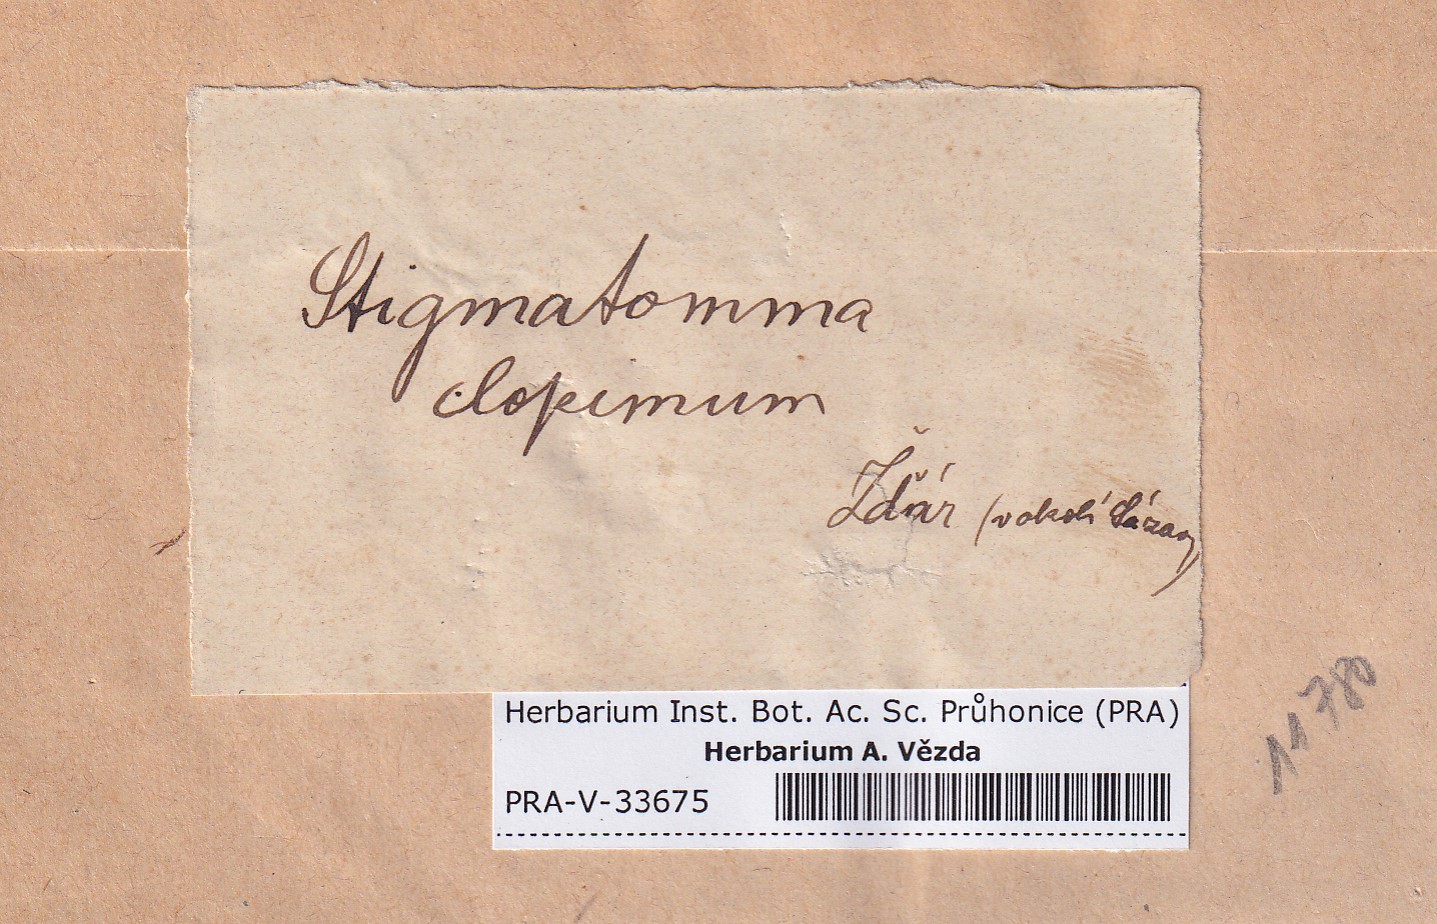 Stigmatomma
clopimum
Žďár (v okolí Sázavy)
Herbarium Inst. Bot. Ac. Sc. Průhonice (PRA)
Herbarium A. Vězda
PRA-V-33675
11780